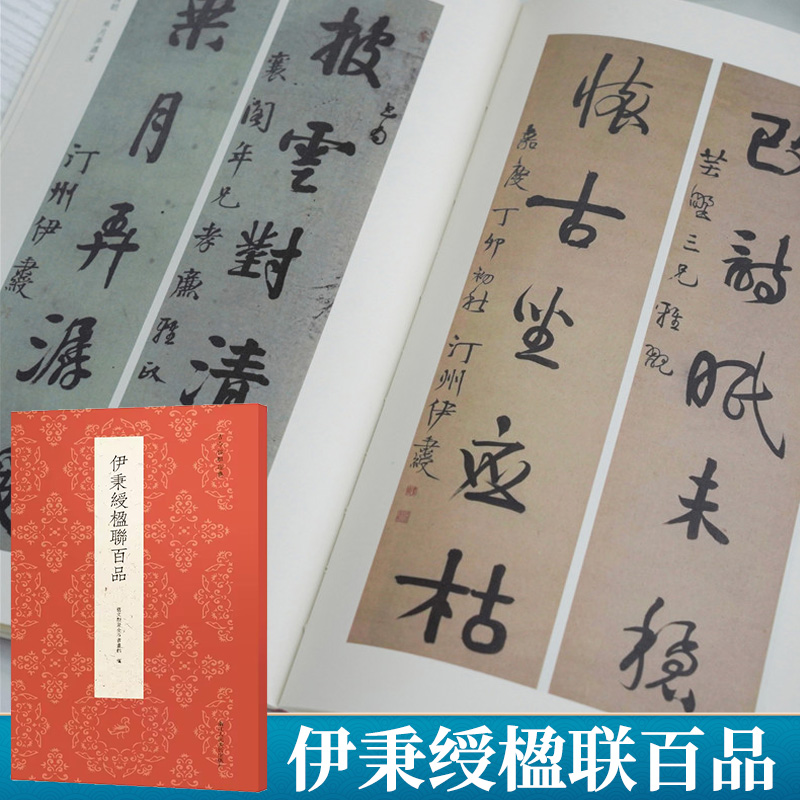 披雲對清
襄閣年兄孝廉雅政
乘月弄潺
汀州伊秉綬
改詩眠未穩
三兄雅
懷古坐應枯
嘉慶丁卯初秋 汀州伊秉綬
伊秉綬楹聯百品
伊秉绶楹联百品